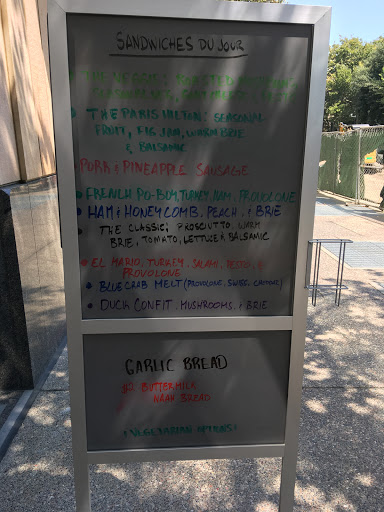 SANDWICHES DU JOUR
THE VEGGIE: ROASTED
THE PARIS HILTON: SEASONAL
FRUIT, FIG JAM, WARM BRIE
& BALSAMIC
PORK & PINEAPPLE SAUSAGE
FRENCH PO-BOY, TURKEY, HAM, PROVOLONE
HAM & HONEYCOMB, PEACH, & BRIE
THE CLASSIC; PROSCIUTTO, WARM
BRIE, TOMATO, LETTUCE & BALSAMIC
EL MARIO, TURKEY, SALAMI, PESTO, &
PROVOLONE
BLUE CRAB MELT (PROVOLONE, SWISS,
DUCK CONFIT, MUSHROOMS, & BRIE
GARLIC BREAD
BUTTERMILK
NAAN BREAD
VEGETARIAN OPTIONS!